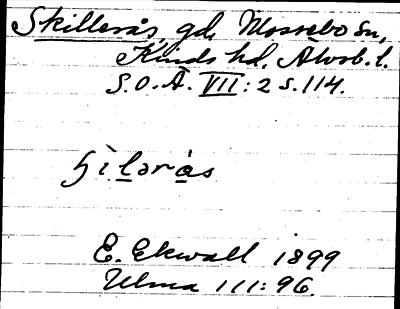 Skillerås, gd, Mossebo sn,
Kinds hd. Älvsb. l.
S.O.Ä. VII: 2 s. 114.
E. Ekwall 1899
Ulma 111:96.